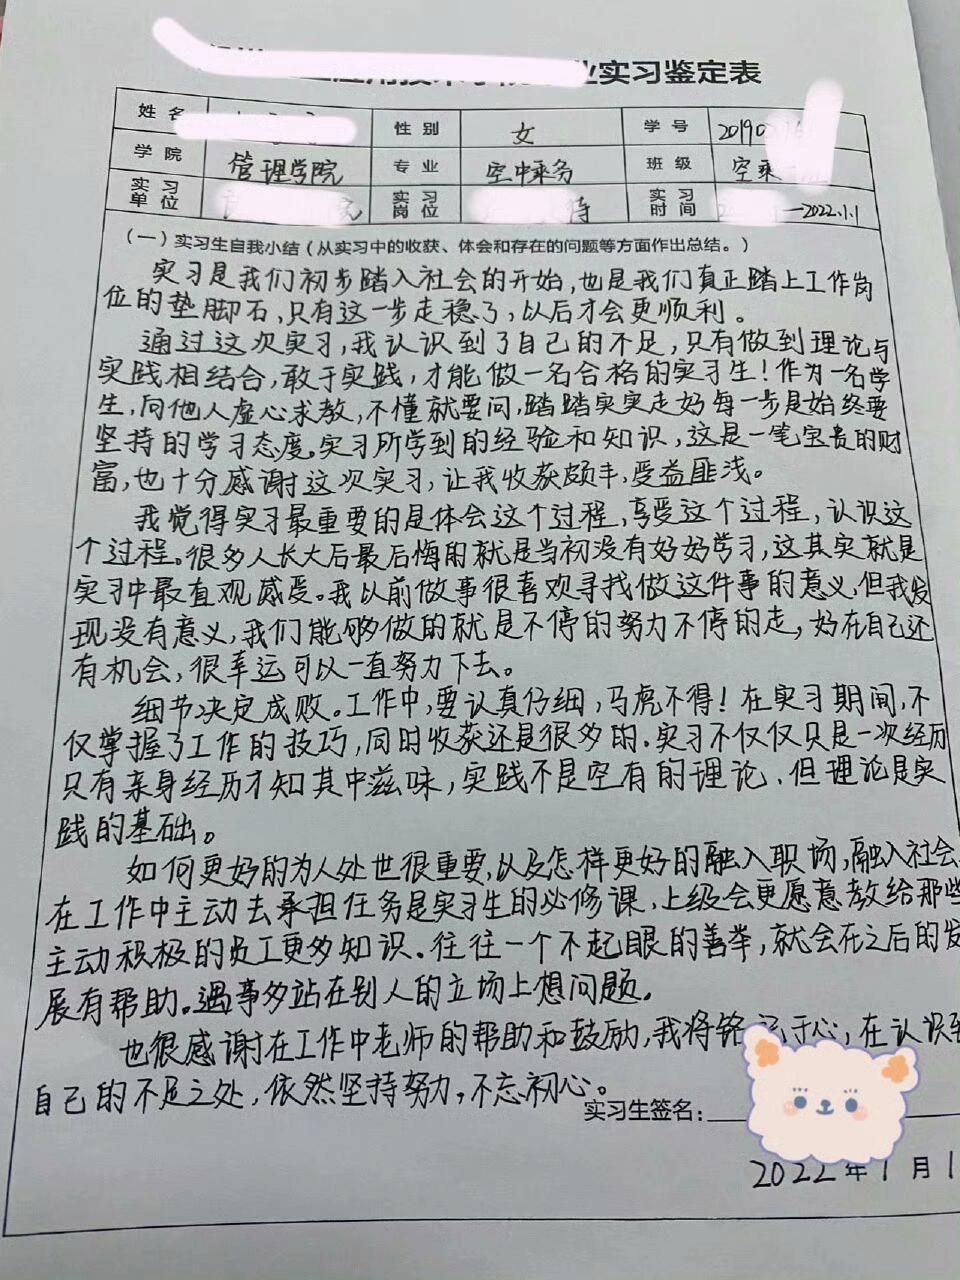 业实习鉴定表
姓名 性别 女 学号 2019
学院 管理学院 专业 空中乘务 班级 空乘
实习单位 实习岗位 待 实习时间 —2022.1.1
（一）实习生自我小结（从实习中的收获、体会和存在的问题等方面作出总结。）
实习是我们初步踏入社会的开始,也是我们真正踏上工作岗
位的垫脚石,只有这一步走稳了,以后才会更顺利。
通过这次实习,我认识到了自己的不足,只有做到理论与
实践相结合,敢于实践,才能做一名合格的实习生!作为一名学
生,向他人虚心求教,不懂就要问,踏踏实实走好每一步是始终要
坚持的学习态度。实习所学到的经验和知识,这是一笔宝贵的财
富,也十分感谢这次实习,让我收获颇丰,受益匪浅。
我觉得实习最重要的是体会这个过程,享受这个过程,认识这
个过程。很多人长大后最后悔的就是当初没有好好学习,这其实就是
实习中最直观感受。我以前做事很喜欢寻找做这件事的意义,但我发
现没有意义,我们能够做的就是不停的努力不停的走,好在自己还
有机会,很幸运可以一直努力下去。
细节决定成败。工作中,要认真仔细,马虎不得!在实习期间,不
仅掌握了工作的技巧,同时收获还是很多的.实习不仅仅只是一次经历
只有亲身经历才知其中滋味,实践不是空有的理论.但理论是实
践的基础。
如何更好的为人处世很重要,以及怎样更好的融入职场,融入社会.
在工作中主动去承担任务是实习生的必修课,上级会更愿意教给那些
主动积极的员工更多知识.往往一个不起眼的善举,就会在之后的发
展有帮助。遇事多站在别人的立场上想问题。
也很感谢在工作中老师的帮助和鼓励,我将铭 于心,在认识到
自己的不足之处,依然坚持努力,不忘初心。
实习生签名:
2022年1月1